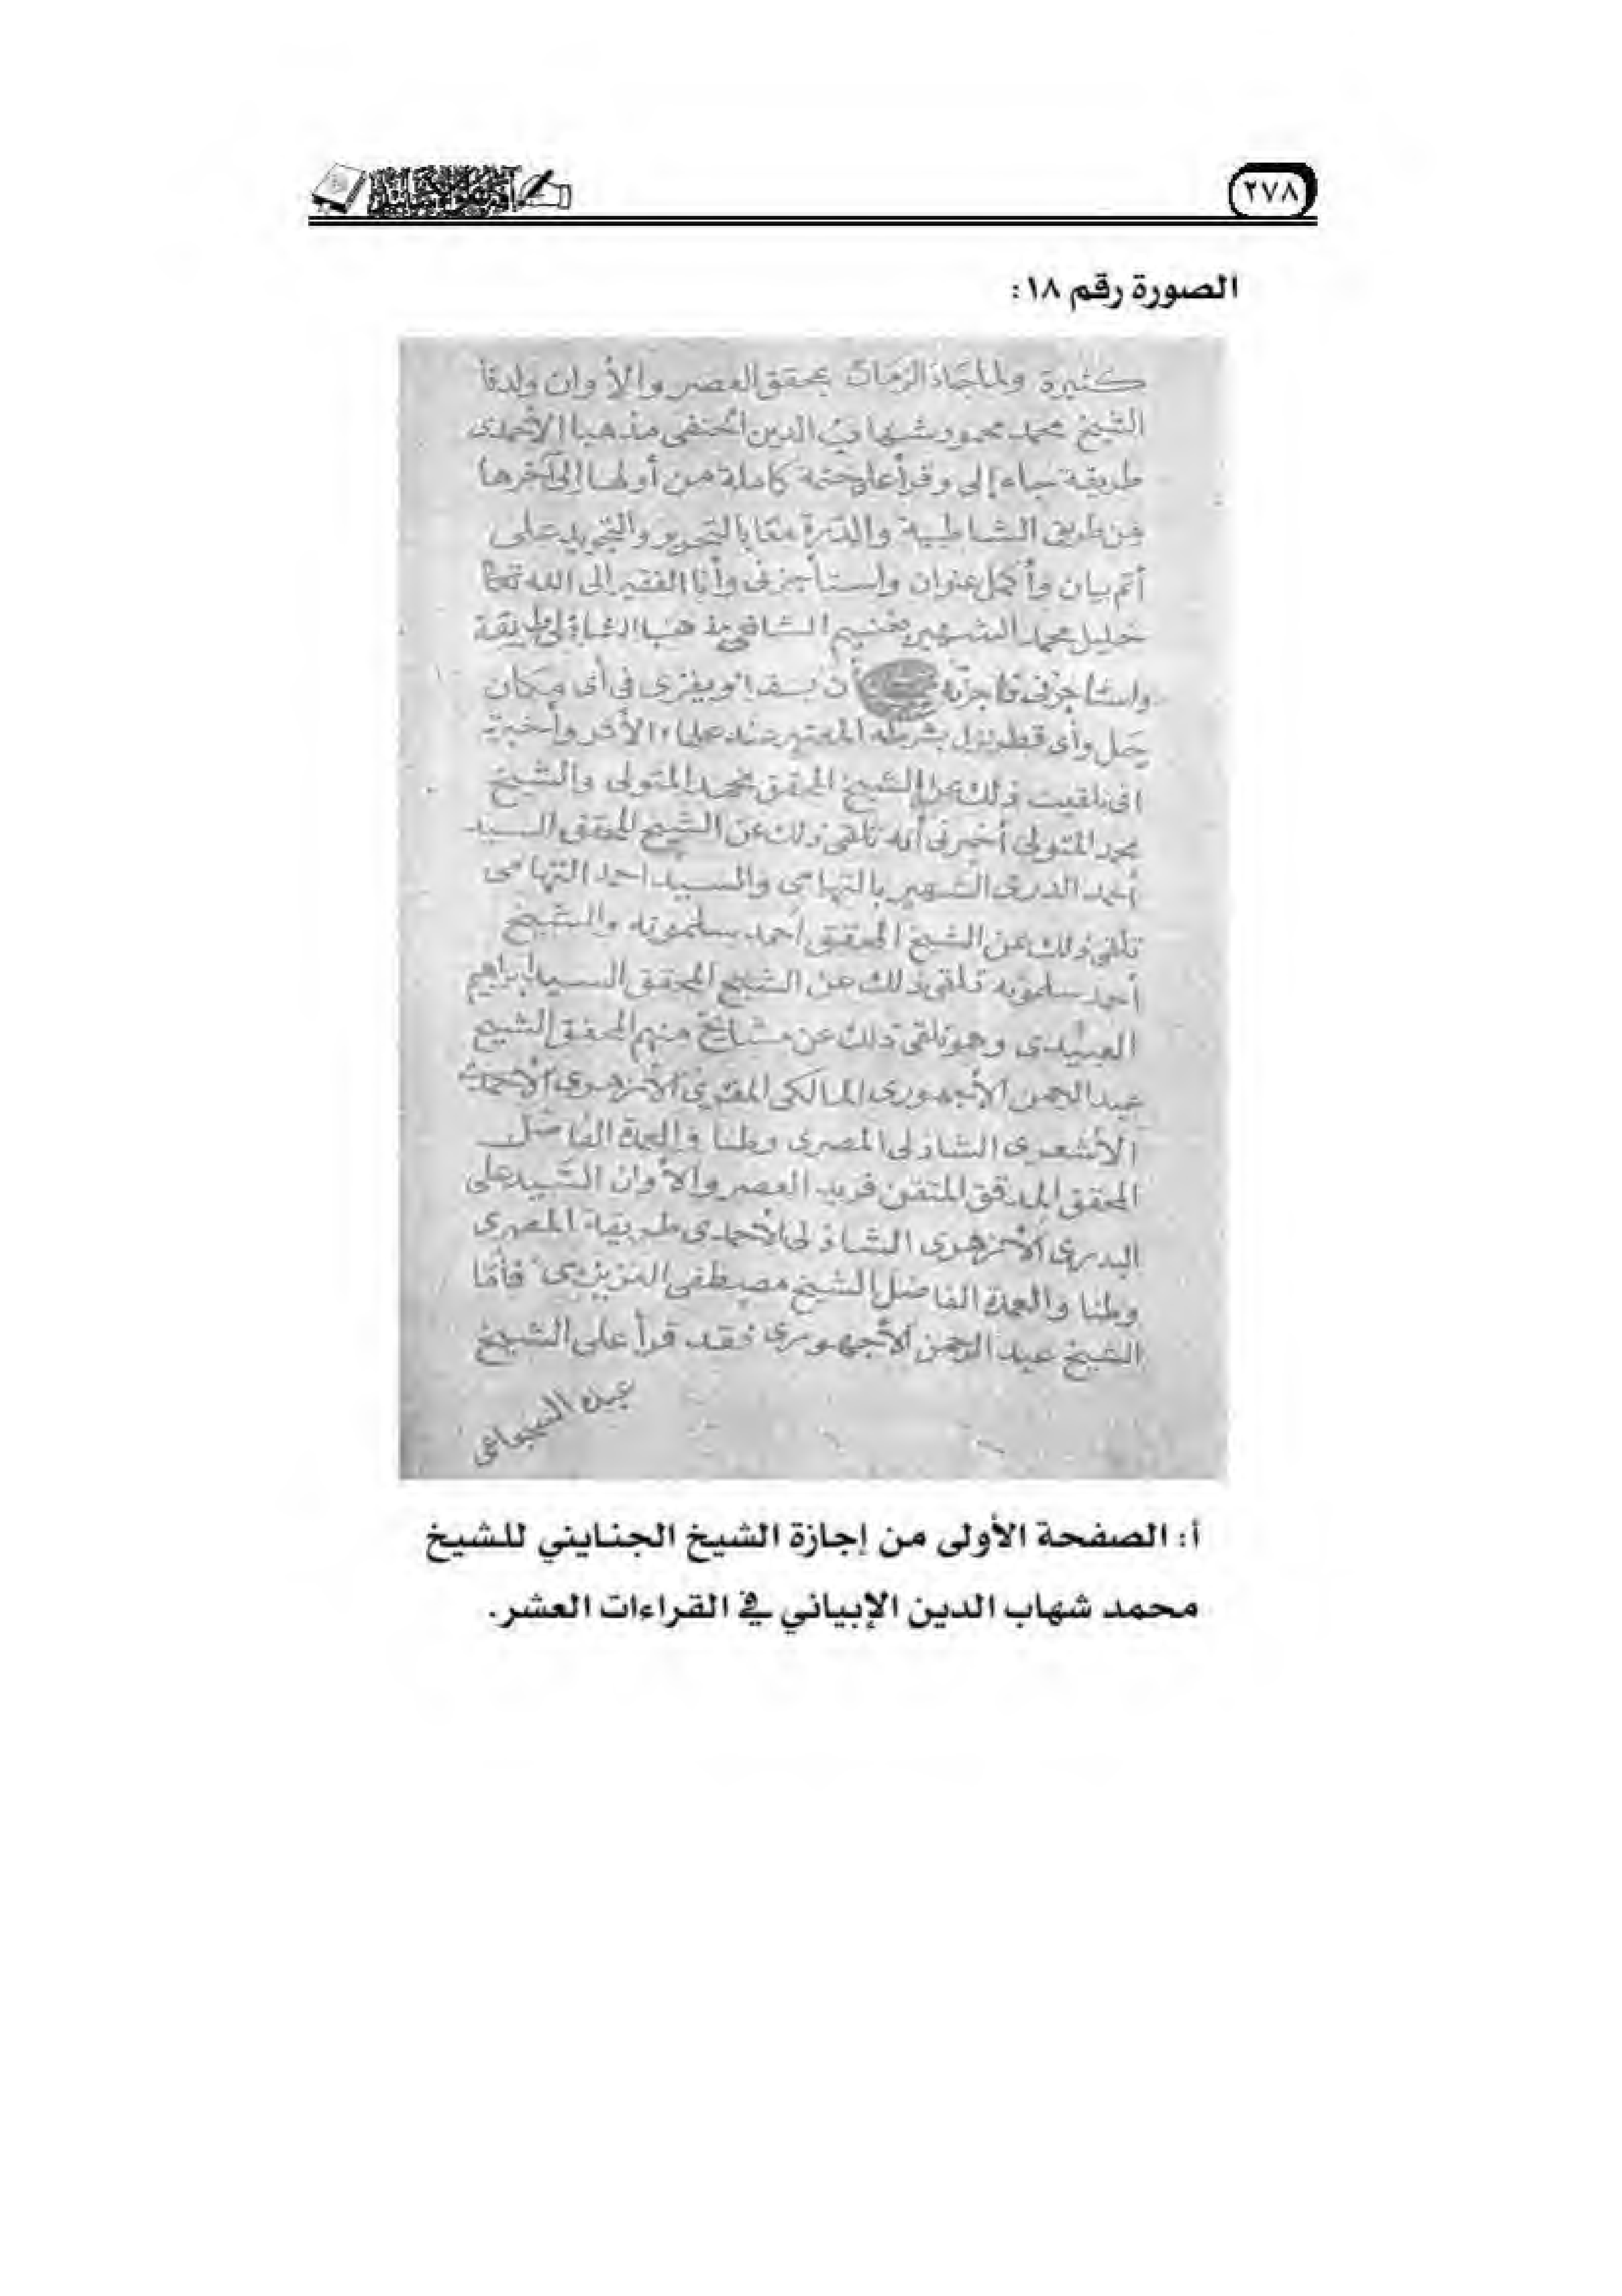 ٢٧٨
الصورة رقم ١٨:
كثيرة ولما جاد الزمان بمحقق العصر والأوان ولدنا
الشيخ محمد محمود شهاب الدين الحنفى مذهبا الأحمدى
طريقة جاء إلى وقرأ على ختمة كاملة من أولها إلى آخرها
من طريق الشاطبية والدرة معا بالتحرير والتجويد على
أتم بيان وأكمل عنوان واستأجزنى وأنا الفقير إلى الله تعالى
خليل محمد الشهير بغنيم الشافعى مذهبا الشاذلى طريقة
واستأجزنى فأجزته أن يقرأ ويقرئ فى أى مكان
حل وأى قطر نزل بشرطه المعتبر عند علماء الأثر وأخبرته
انى تلقيت ذلك عن الشيخ المحقق محمد المتولى والشيخ
محمد المتولى أخبرنى أنه تلقى ذلك عن الشيخ المحقق السيد
أحمد الدرى الشهير بالتهامى والسيد احمد التهامى
تلقى ذلك عن الشيخ المحقق أحمد سلمونه والشيخ
أحمد سلمونه تلقى ذلك عن الشيخ المحقق السيد ابراهيم
العبيدى وهو تلقى ذلك عن مشايخ منهم المحقق الشيخ
عبد الرحمن الأجهورى المالكى المقرئ الأزهرى الأحمدى
الأشعرى الشاذلى المصرى وطنا والعمدة الفاضل
المحقق المدقق المتقن فريد العصر والأوان السيد على
البدرى الأزهرى الشاذلى الأحمدى طريقة المصرى
وطنا والعمدة الفاضل الشيخ مصطفى العزيزى فأما
الشيخ عبد الرحمن الأجهورى فقد قرأ على الشيخ
عبده السجاعى
أ: الصفحة الأولى من إجازة الشيخ الجنايني للشيخ
محمد شهاب الدين الإبياني في القراءات العشر.